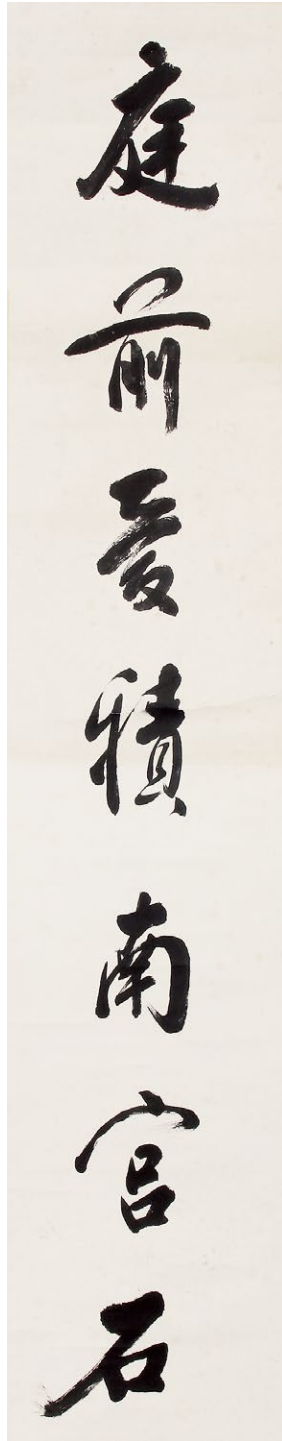 庭前愛積南宮石